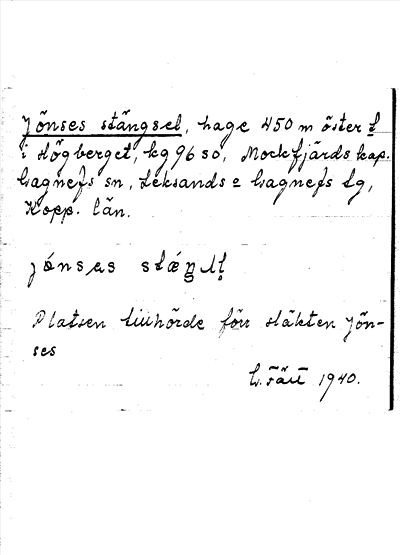 Jönses stängsel, hage 450 m öster t
i Högberget, kg 96 so, Mockfjärds kap.
Gagnefs sn, Leksands o Gagnefs tg,
Kopp. län.
Platsen tillhörde förr släkten Jön-
ses
G. Fält 1940.